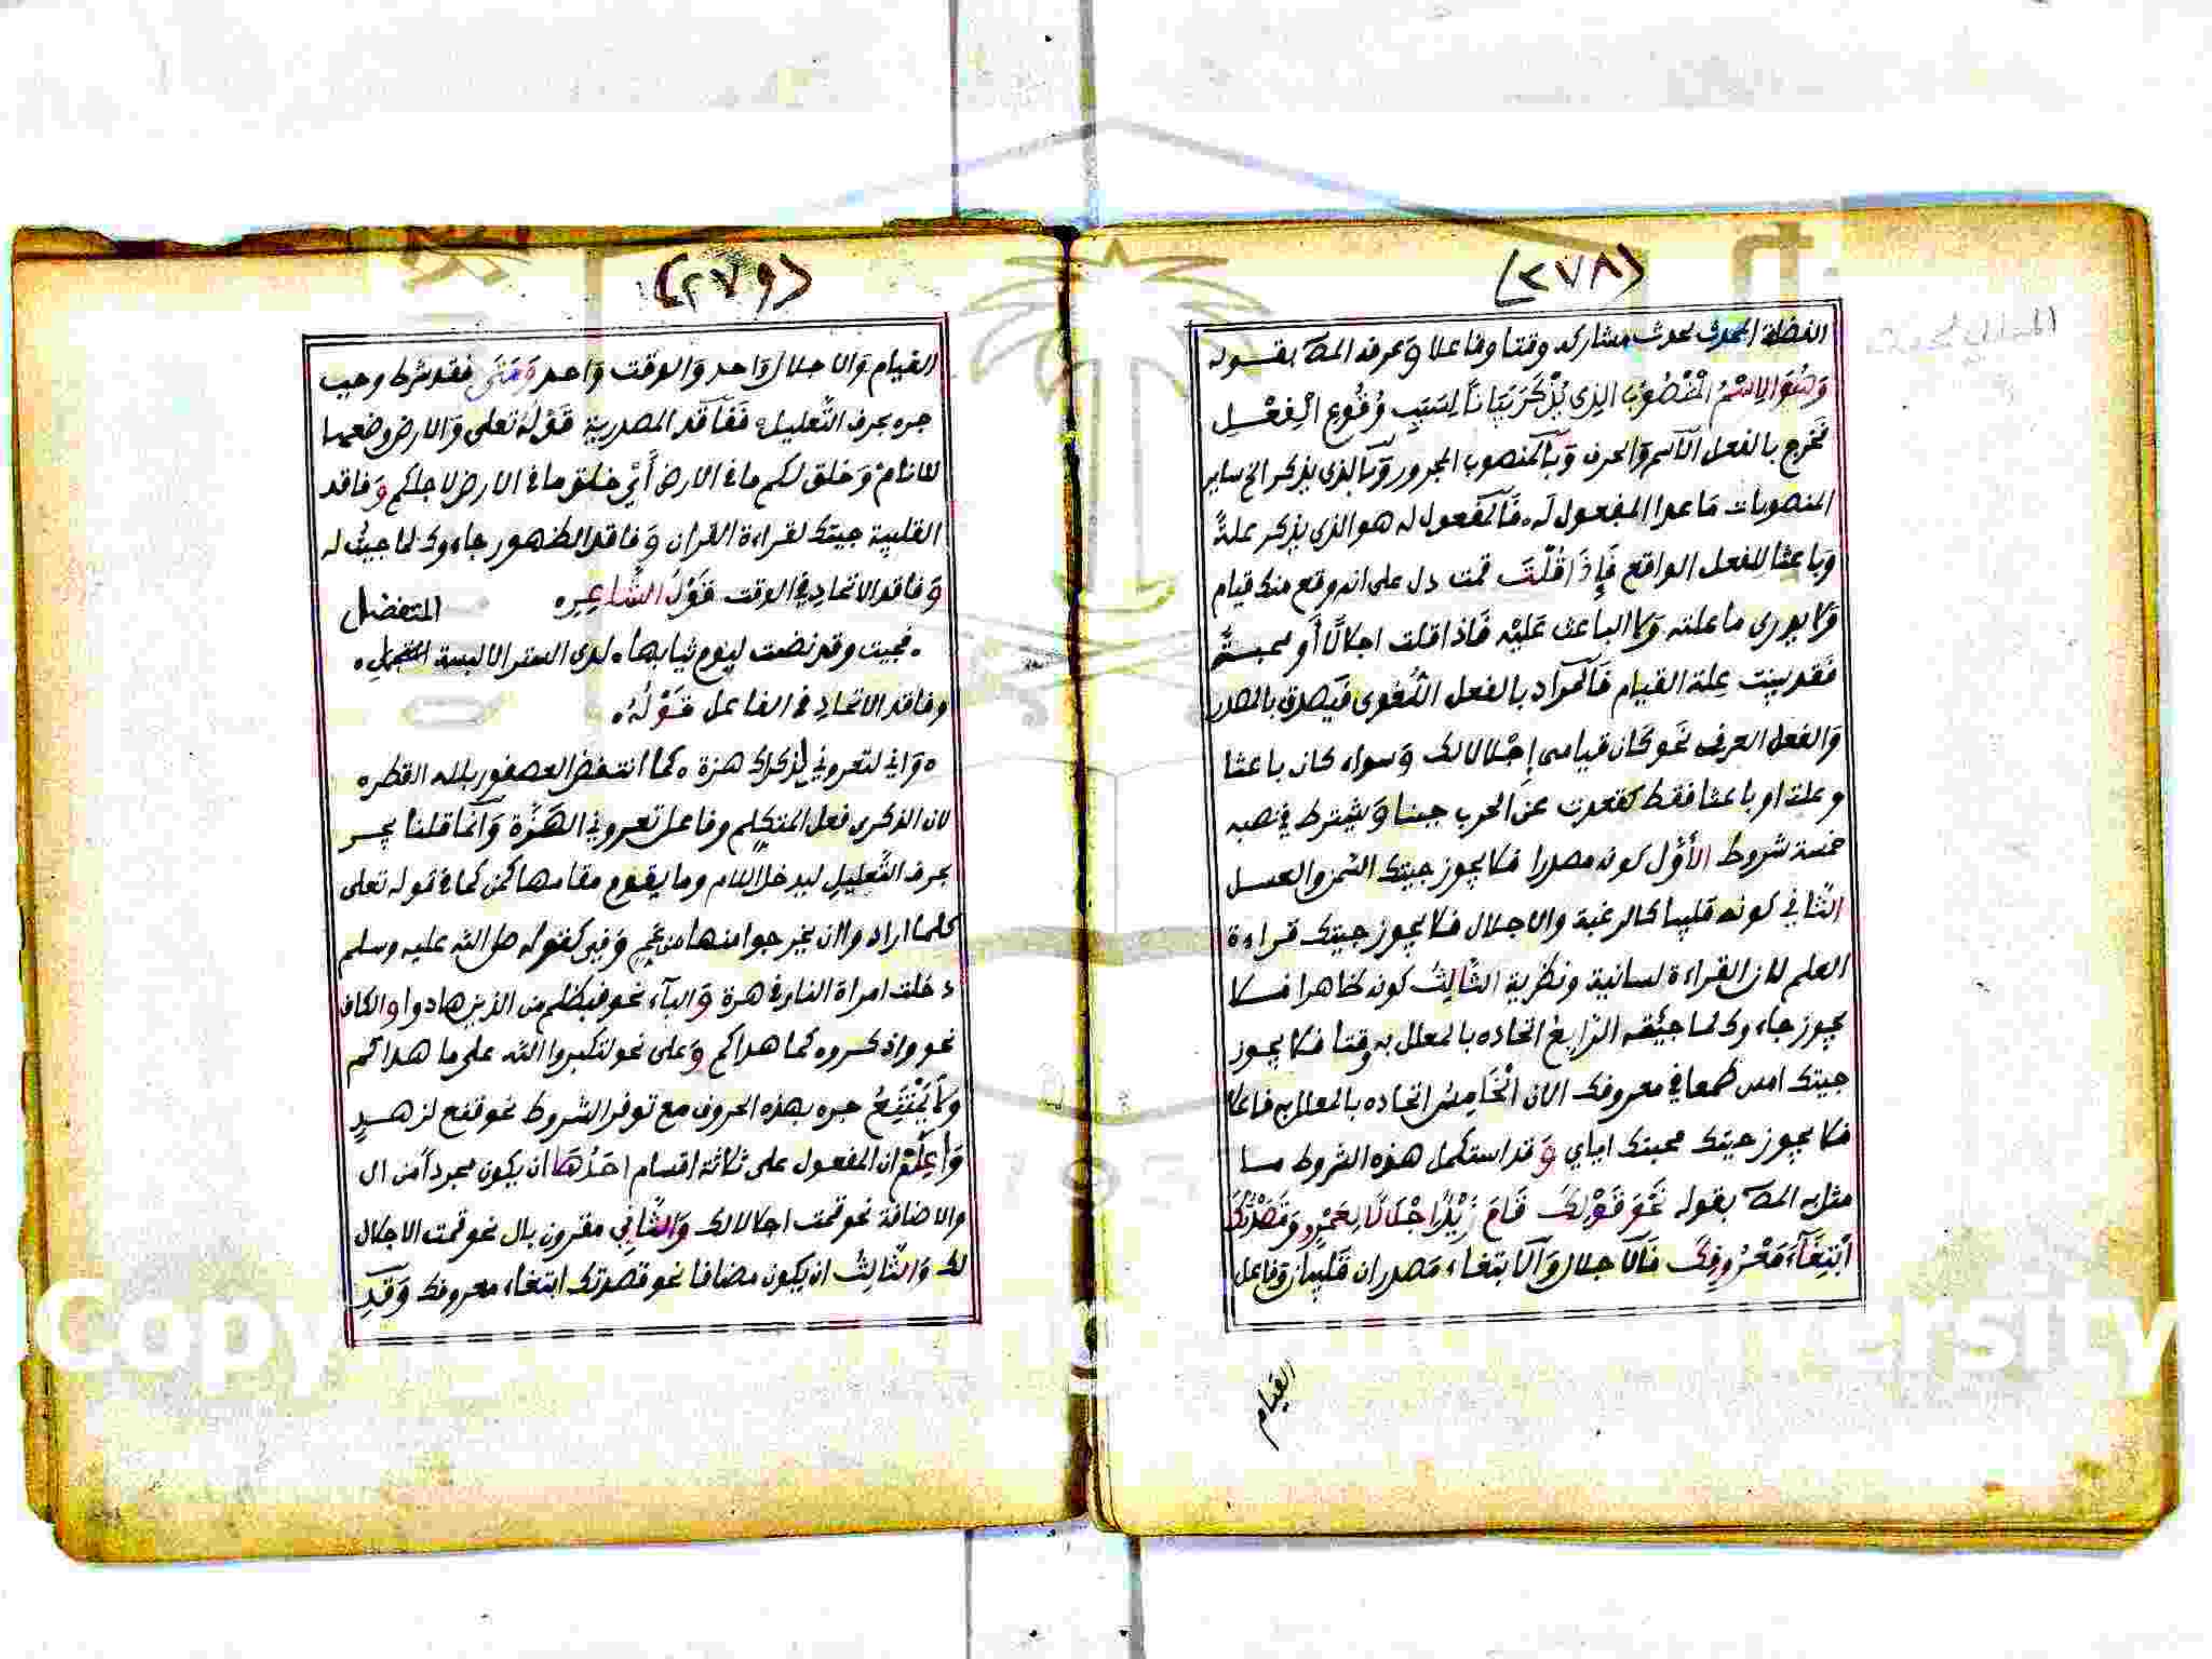 (٢٧٨)
الفضلة المحدث لحدث مشاركه وقتا وفاعلا وعرفه المص بقوله
وَهُوَ الِاسْمُ الْمَنْصُوبُ الذِى يُذْكَرُ بَيَاناً لِسَبَبِ وُقُوعِ الْفِعْلِ
فخرج بالفعل الاسم والحرف وبالمنصوب المجرور وبالذى يذكر الخ ساير
المنصوبات ماعدا المفعول له فالمفعول له هو الذى يذكر علة
وباعثا للفعل الواقع فإذا قلت قمت دل على انه وقع منك قيام
ولا يدرى ما علته ولا الباعث عليه فاذا قلت اجلالا أو محبة
فقد بينت علة القيام فالمراد بالفعل اللغوى فيصدق بالمصدر
والفعل العرفى نحو كان قيامى إجلالا لك وسواء كان باعثا
وعلة او باعثا فقط كقعدت عن الحرب جبنا ويشترط فى نصبه
خمسة شروط الأول كونه مصدرا فلا يجوز جيتك السمن والعسل
الثانى كونه قلبيا كالرغبة والاجلال فلا يجوز جيتك قراءة
العلم لان القراءة لسانية ونظرية الثالث كونه ظاهرا فلا
يجوز جاءوك لما جئته الرابع اتحاده بالمعلل به وقتا فلا يجوز
جيتك امس طمعا فى معروفك الان الخامس اتحاده بالمعلل به فاعلا
فلا يجوز جيتك محبتك اياي وقد استكمل هذه الشروط ما
مثل به المص بقوله نَحْوَ قَوْلِكَ قَامَ زَيْدٌ اِجْلَالًا لِعَمْرٍو وَقَصَدْتُكَ
ابْتِغَآءَ مَعْرُوفِكَ فالاجلال والابتغاء مصدران قلبيان وفاعل
القيام
(٢٧٩)
القيام والاجلال واحد والوقت واحد ومتى فقد شرط وجب
جره بحرف التعليل ففاقد المصدرية قوله تعلى والارض وضعها
للانام وخلق لكم ما فى الارض أي خلق ما فى الارض لاجلكم وفاقد
القلبية جيتك لقراءة القران وفاقد الظهور جاءوك لما جيت له
وفاقد الاتحاد فى الوقت قول الشاعر المتفضل
فجيت وقد نضت لنوم ثيابها لدى الستر الا لبسة
وفاقد الاتحاد فى الفاعل قوله
وانى لتعرونى لذكراك هزة كما انتفض العصفور بلله القطر
لان الذكرى فعل المتكلم وفاعل تعرونى الهزة وانما قلنا يجر
بحرف التعليل ليدخل اللام وما يقوم مقامها كمن كما فى قوله تعلى
كلما ارادوا ان يخرجوا منها من غم وفى كقوله صلى الله عليه وسلم
دخلت امراة النار فى هرة والبآء نحو فبظلم من الذين هادوا والكاف
نحو واذكروه كما هداكم وعلى نحو لتكبروا الله على ما هداكم
ولا يمتنع جره بهذه الحروف مع توفر الشروط نحو قنع لزهد
واعلم ان المفعول على ثلاثة اقسام احدها ان يكون مجردا من ال
والاضافة نحو قمت اجلالا لك والثانى مقرون بال نحو قمت الاجلال
لك والثالث ان يكون مضافا نحو قصدتك ابتغاء معروفك وقد